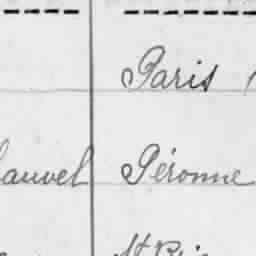 Paris
auvel Péronne